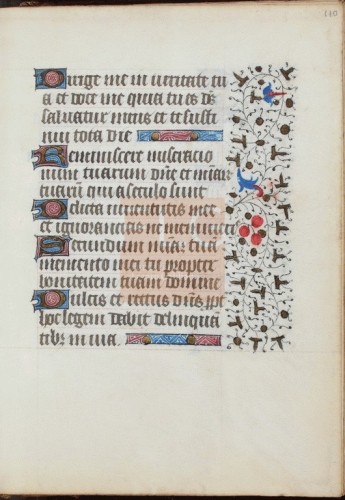 110
Dirige me in veritate tu
a et doce me quia tu es ds
salvator meus et te susti
nui tota die
Reminiscere miseracio
num tuarum dne et miar
tuarum qui a seculo sunt
Delicta iuventutis mee
et ignorancias ne memineris
Secundum miam tuā
memento mei tu propter
bonitatem tuam domine
Dulcis et rectus dns ppt
hoc legem dabit delinquē
tibus in via.